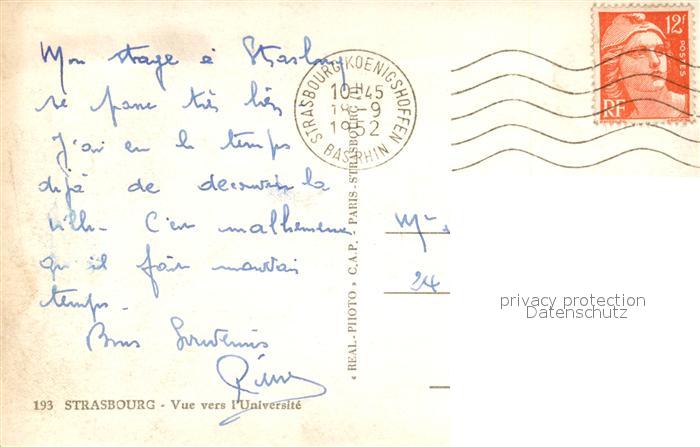 Mon stage à Strasbourg
se passe très bien
J'ai eu le temps
déjà de découvrir la
ville. C'est malheureux
qu'il fait mauvais
temps.
Bons Souvenirs
193 STRASBOURG - Vue vers l'Université
« REAL-PHOTO » C.A.P. - PARIS-STRASBOURG
STRASBOURG KOENIGSHOFFEN
10H45
18-9
1952
BAS RHIN
12F
POSTES
RF
Mr
24
privacy protection
Datenschutz